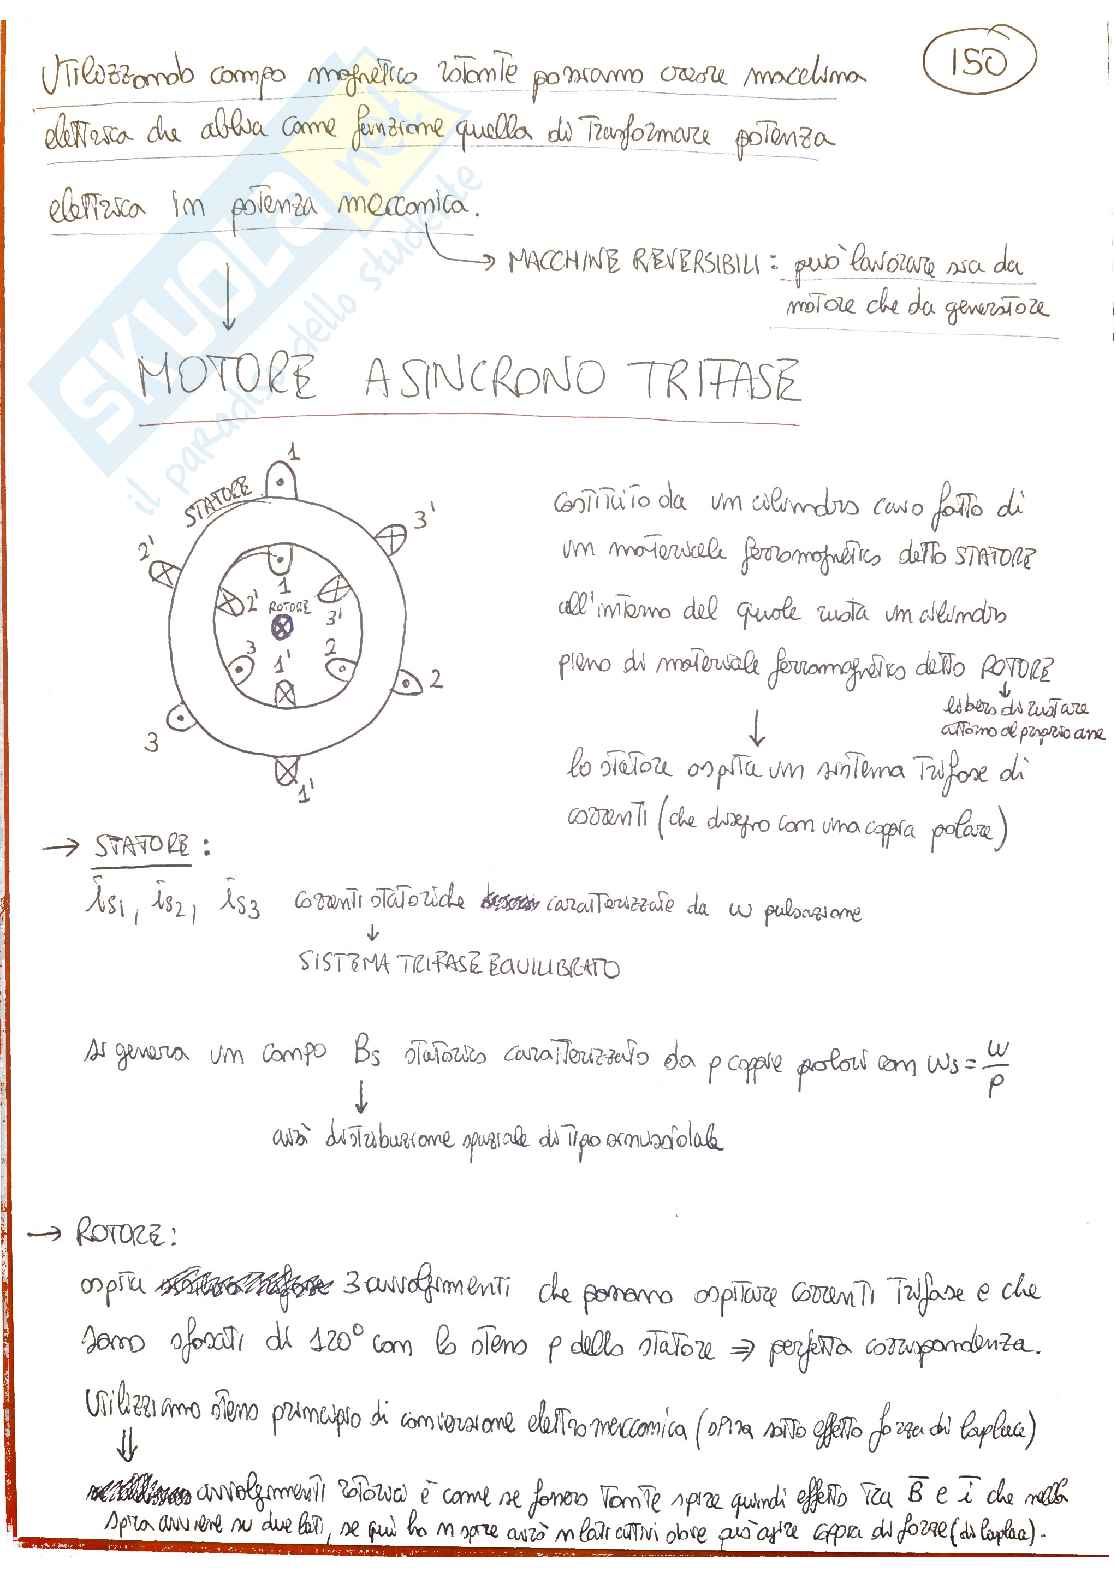 150
Utilizzando campo magnetico rotante possiamo creare macchina
elettrica che abbia come funzione quella di Trasformare potenza
elettrica in potenza meccanica.
→ MACCHINE REVERSIBILI: può lavorare sia da
motore che da generatore
SKUOLA.net
il paradiso dello studente
MOTORE ASINCRONO TRIFASE
STATORE
1
3'
2'
1
2' ROTORE 3'
3 1' 2
2
3
1'
costituito da un cilindro cavo fatto di
un materiale ferromagnetico detto STATORE
all'interno del quale ruota un cilindro
pieno di materiale ferromagnetico detto ROTORE
libero di ruotare
attorno al proprio asse
lo statore ospita un sistema Trifase di
correnti (che disegno con una coppia polare)
→ STATORE:
is1, is2, is3 correnti statoriche caratterizzate da ω pulsazione
↓
SISTEMA TRIFASE EQUILIBRATO
si genera un campo Bs statorico caratterizzato da p coppie polari con ωs = ω/p
↓
avrà distribuzione spaziale di tipo sinusoidale
→ ROTORE:
ospita 3 avvolgimenti che possono ospitare correnti Trifase e che
sono sfasati di 120° con lo stesso p dello statore ⇒ perfetta corrispondenza.
Utilizziamo stesso principio di conversione elettromeccanica (spira sotto effetto forza di Laplace)
⇓
avvolgimenti rotorici è come se fossero tante spire quindi effetto tra B e i che nella
spira avviene su due lati, se qui ho n spire avrò n lati attivi dove può agire coppia di forze (di Laplace).